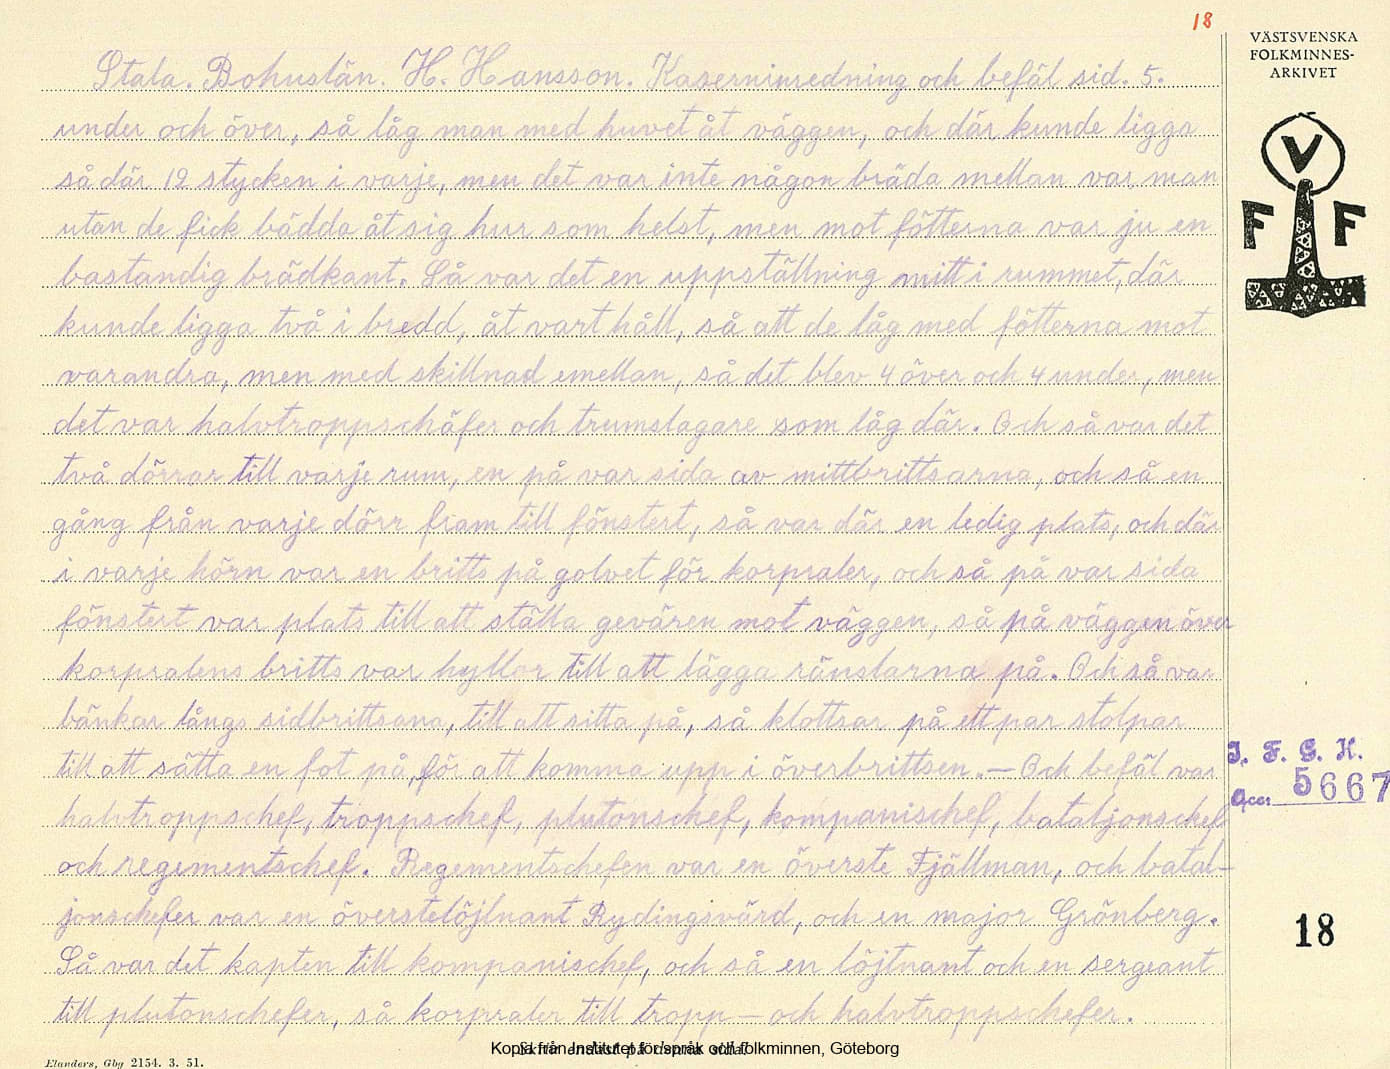 18
VÄSTSVENSKA
FOLKMINNES-
ARKIVET
V
F F
Stala. Bohuslän. H. Hansson. Kaserninredning och befäl sid. 5.
under och över, så låg man med huvet åt väggen, och där kunde ligga
så där 12 stycken i varje, men det var inte någon bräda mellan var man
utan de fick bädda åt sig hur som helst, men mot fötterna var ju en
bastandig brädkant. Så var det en uppställning mitt i rummet, där
kunde ligga två i bredd, åt vart håll, så att de låg med fötterna mot
varandra, men med skillnad emellan, så det blev 4 över och 4 under, men
det var halvtroppschäfer och trumslagare som låg där. Och så var det
två dörrar till varje rum, en på var sida av mittbrittsarna, och så en
gång från varje dörr fram till fönstert, så var där en ledig plats, och där
i varje hörn var en britts på golvet för korpraler, och så på var sida
fönstert var plats till att ställa gevären mot väggen, så på väggen över
korpralens britts var hyllor till att lägga ränslarna på. Och så var
bänkar långs sidbrittsana, till att sitta på, så klottsar på ett par stolpar
till att sätta en fot på, för att komma upp i överbrittsen. — Och befäl var
halvtroppschef, troppschef, plutonschef, kompanischef, bataljonschef
och regementschef. Regementschefen var en överste Fjällman, och batal-
jonschefer var en överstelöjtnant Rydingsvärd, och en major Grönberg.
Så var det kapten till kompanischef, och så en löjtnant och en sergeant
till plutonschefer, så korpraler till tropp — och halvtroppschefer.
I. F. G. H.
Acc. 5667
18
Skriv endast på denna sida!
Kopia från Institutet för språk och folkminnen, Göteborg
Elanders, Gbg 2154. 3. 51.